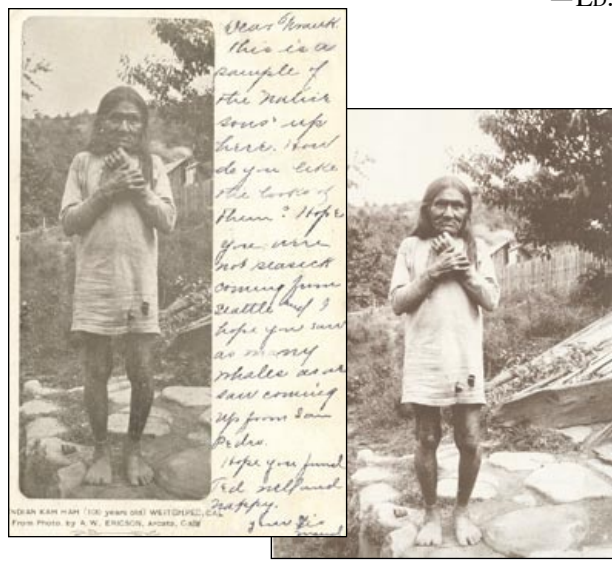 —Ed.
Dear Frank.
This is a
sample of
the Native
sons' up
here. How
do you like
the looks of
them? Hope
you were
not seasick
coming from
Seattle and I
hope you saw
as many
whales as we
saw coming
up from San
Pedro.
Hope you found
Ted well and
happy.
your
INDIAN KAM HAM (100 years old) WEITCHPEC, CAL.
From Photo. by A. W. ERICSON, Arcata, Cal.